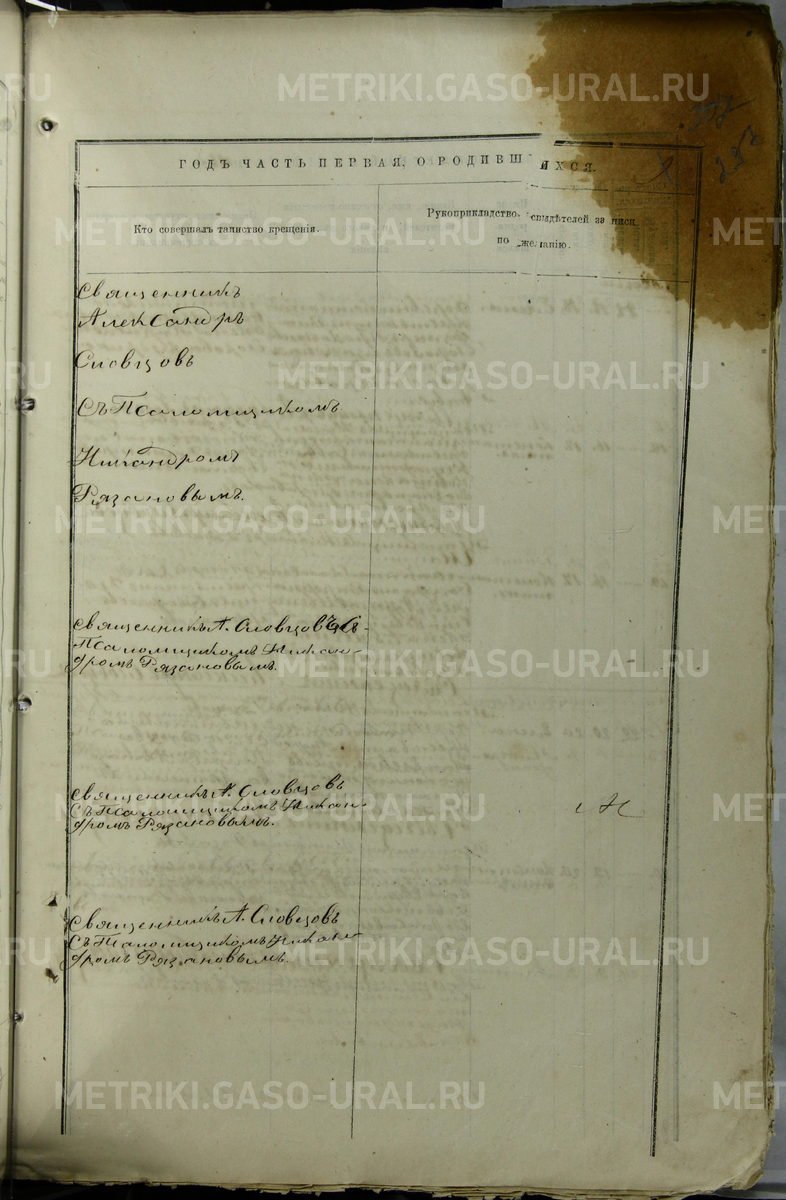 ГОДЪ ЧАСТЬ ПЕРВАЯ, О РОДИВШИХСЯ.
Кто совершалъ таинство крещенія.
Рукоприкладство свидѣтелей записи
по желанію.
Священникъ
Александръ
Словцовъ
Съ Псаломщикомъ
Никандромъ
Рязановымъ.
Священникъ А. Словцовъ съ
Псаломщикомъ Никан-
дромъ Рязановымъ.
Священникъ А. Словцовъ
Съ Псаломщикомъ Никан-
дромъ Рязановымъ.
Священникъ А. Словцовъ
Съ Псаломщикомъ Никан-
дромъ Рязановымъ.
METRIKI.GASO-URAL.RU